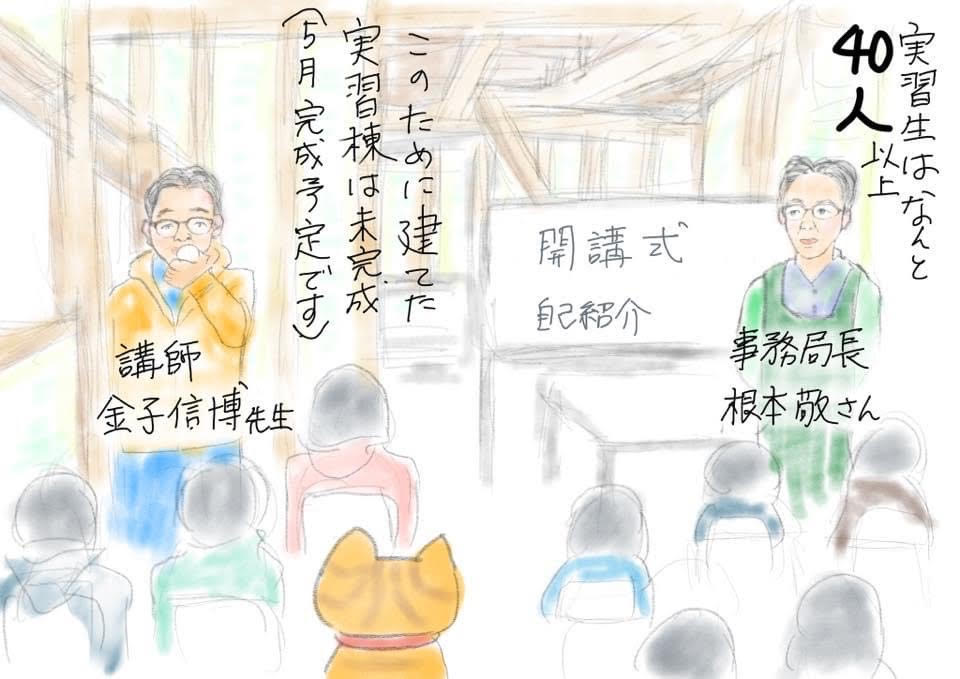 実習生はなんと
40人
以上
このために建てた
実習棟は未完成
(5月完成予定です)
開講式
自己紹介
事務局長
根本敬さん
講師
金子信博先生